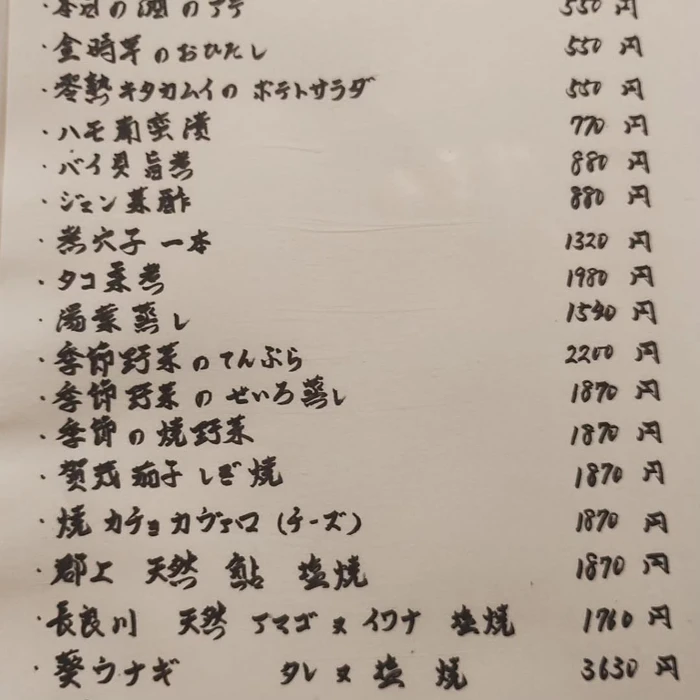 ・本日の酒のアテ 550円
・金時草のおひたし 550円
・零熟キタカムイのポテトサラダ 550円
・ハモ南蛮漬 770円
・バイ貝旨煮 880円
・ジュン菜酢 880円
・煮穴子 一本 1320円
・タコ柔煮 1980円
・湯葉蒸し 1540円
・季節野菜のてんぷら 2200円
・季節野菜のせいろ蒸し 1870円
・季節の焼野菜 1870円
・賀茂茄子しぎ焼 1870円
・焼カチョカヴァロ(チーズ) 1870円
・郡上 天然 鮎 塩焼 1870円
・長良川 天然 アマゴ又イワナ 塩焼 1760円
・葵ウナギ タレ又塩焼 3630円